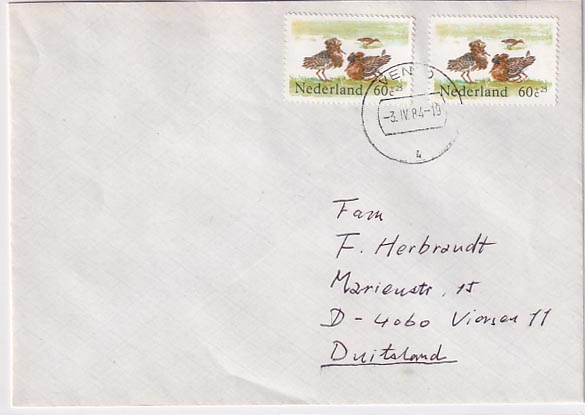 Nederland 60c+25
Nederland 60c+25
VENLO
-3.IV.84-19
4
Fam
F. Herbrandt
Marienstr. 15
D-4060 Viersen 11
Duitsland